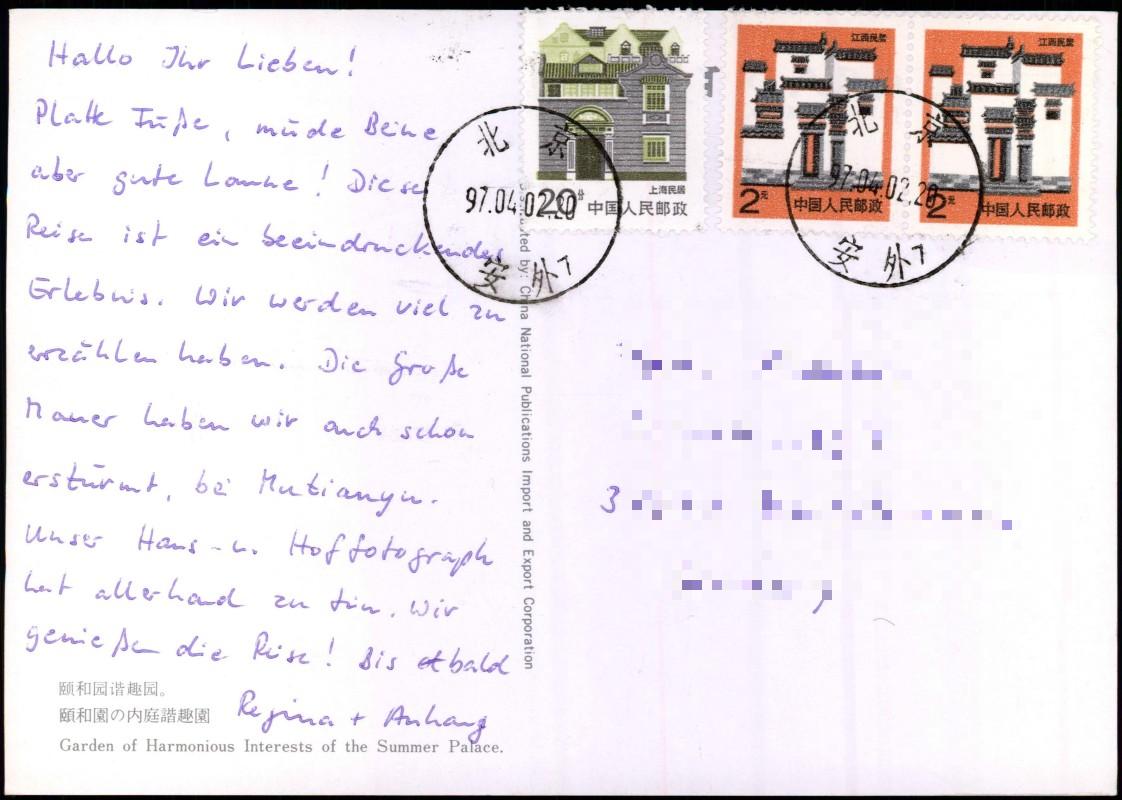 Hallo Ihr Lieben!
Platte Füße, müde Beine
aber gute Laune! Diese
Reise ist ein beeindruckendes
Erlebnis. Wir werden viel zu
erzählen haben. Die Große
Mauer haben wir auch schon
erstürmt, bei Mutianyu.
Unser Haus- u. Hoffotograph
hat allerhand zu tun. Wir
genießen die Reise! Bis bald
Regina + Anhang
颐和园谐趣园。
頤和園の内庭諧趣園
Garden of Harmonious Interests of the Summer Palace.
ted by: China National Publications Import and Export Corporation
上海民居
20分 中国人民邮政
江西民居
2元 中国人民邮政
江西民居
2元 中国人民邮政
北京
97.04.02.20
安外7
北京
97.04.02.20
安外7
3